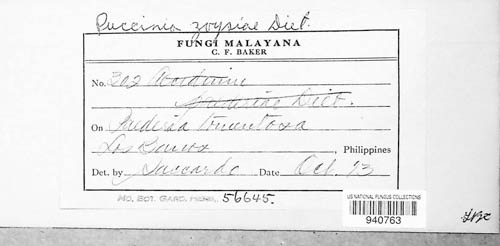 Puccinia zoysiae Diet.
FUNGI MALAYANA
C. F. BAKER
No. 302 Aecidium
paederiae Diet.
On Paederia tomentosa
Los Banos, Philippines
Det. by Saccardo Date Oct. 13
NO. BOT. GARD. HERB. 56645.
US NATIONAL FUNGUS COLLECTIONS
940763